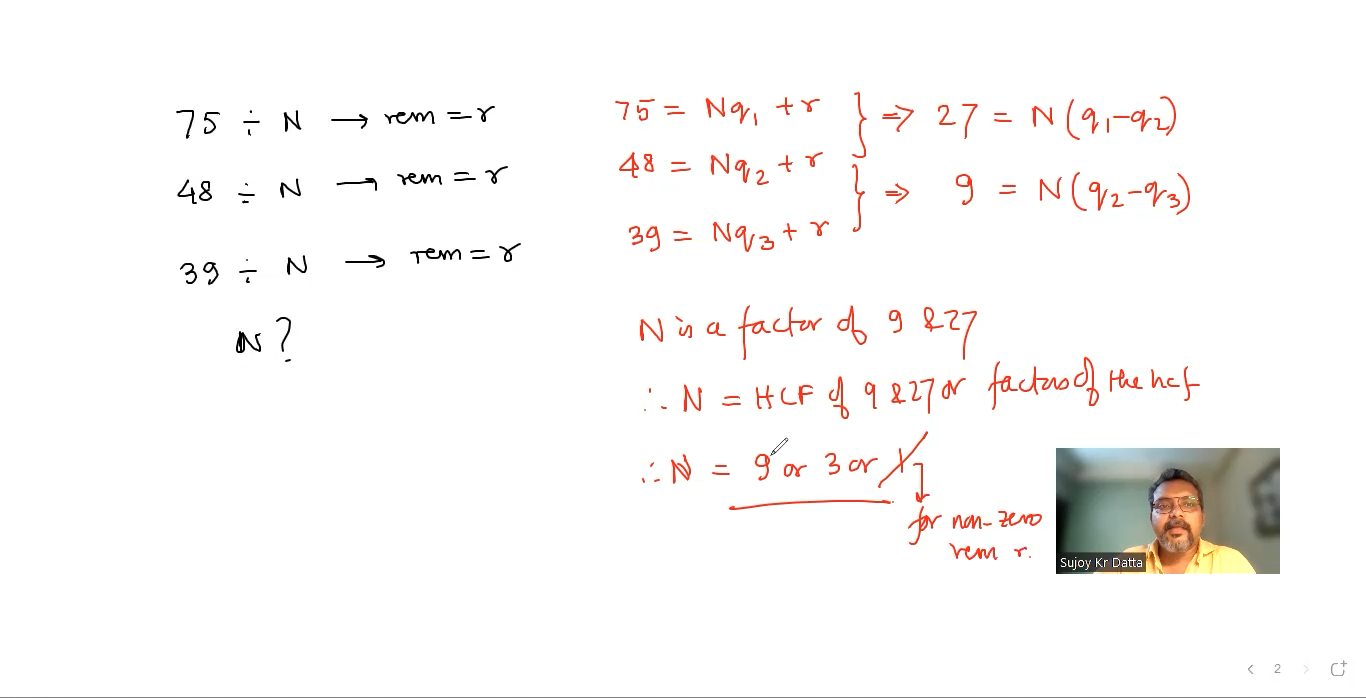 75 ÷ N → rem = r
48 ÷ N → rem = r
39 ÷ N → rem = r
N?
75 = Nq₁ + r } ⇒ 27 = N(q₁-q₂)
48 = Nq₂ + r
} ⇒ 9 = N(q₂-q₃)
39 = Nq₃ + r
N is a factor of 9 & 27
∴ N = HCF of 9 & 27 or factors of the hcf
∴ N = 9 or 3 or 1
for non-zero
rem r.
Sujoy Kr Datta
2